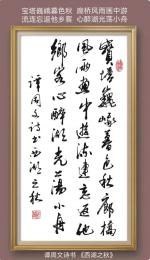 宝塔巍峨暮色秋 廊桥风雨画中游
流连忘返他乡客 心醉湖光荡小舟
寳塔巍峨暮色秋廊橋
風雨畫中遊流連忘返他
鄉客心醉湖光蕩小舟
谭周文诗书西湖之秋
谭周文诗书《西湖之秋》